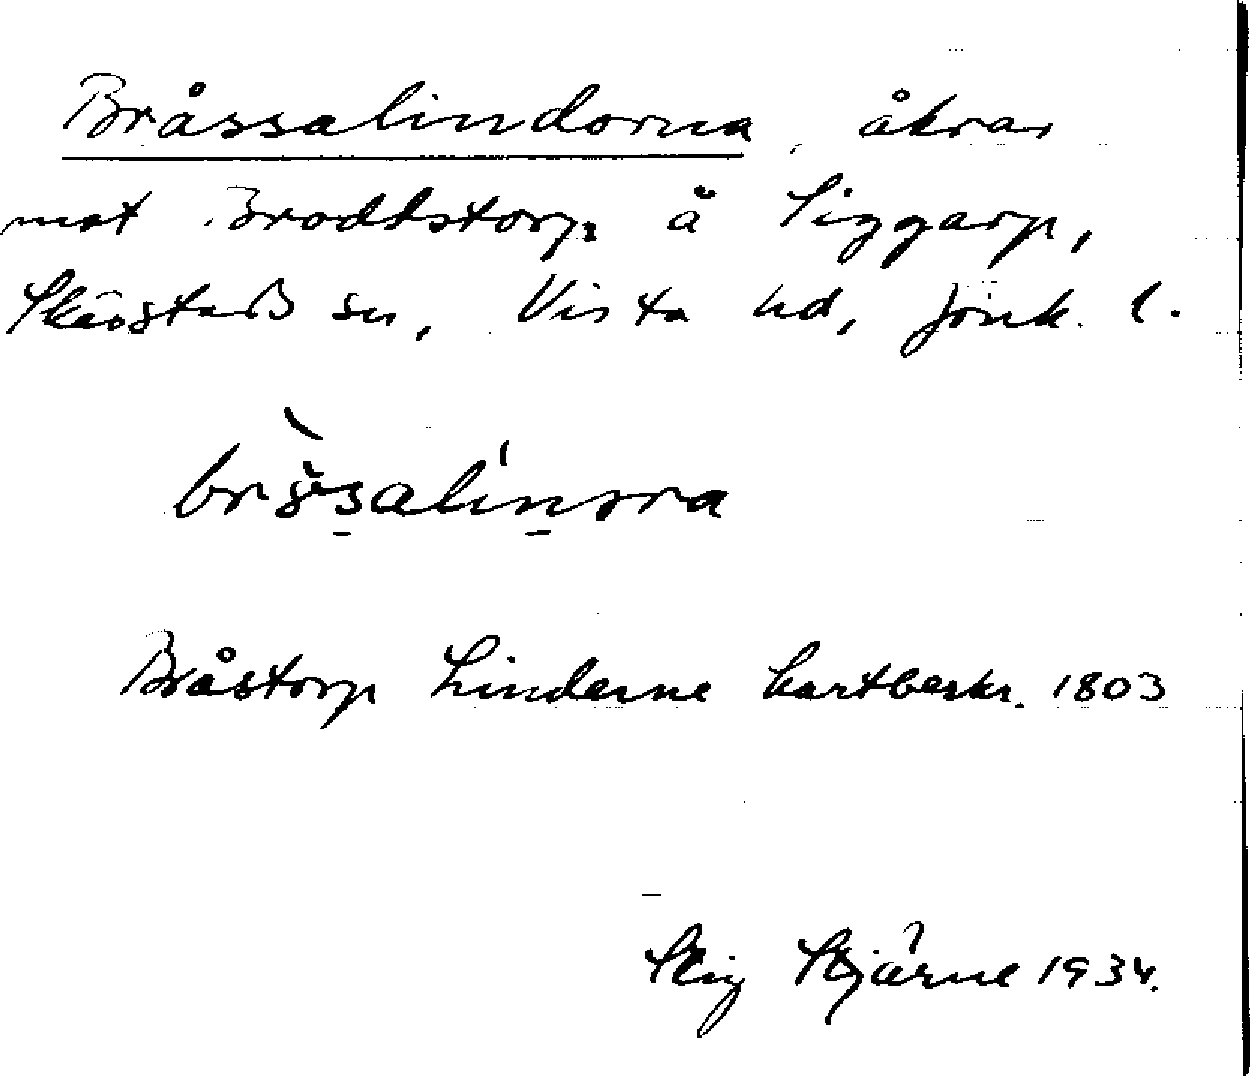 Bråssalindorna, åkrar
mot Broddstorp å Siggarp,
Skärstads sn, Vista hd, Jönk. l.
Bråstorp Linderne kartbeskr. 1803
Stig Stjärne 1934.